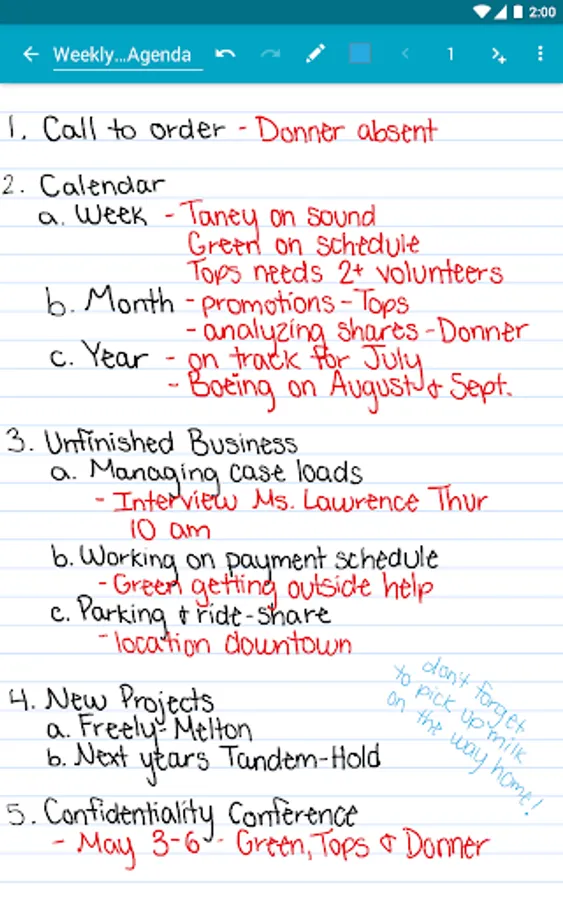 2:00
Weekly...Agenda
1
1. Call to order - Donner absent
2. Calendar
a. Week - Taney on sound
Green on schedule
Tops needs 2+ volunteers
b. Month - promotions - Tops
- analyzing shares - Donner
c. Year - on track for July
- Boeing on August & Sept.
3. Unfinished Business
a. Managing case loads
- Interview Ms. Lawrence Thur
10 am
b. Working on payment schedule
- Green getting outside help
c. Parking & ride-share
- location downtown
4. New Projects
a. Freely-Melton
b. Next years Tandem-Hold
don't forget
to pick up milk
on the way home!
5. Confidentiality Conference
- May 3-6 - Green, Tops & Donner